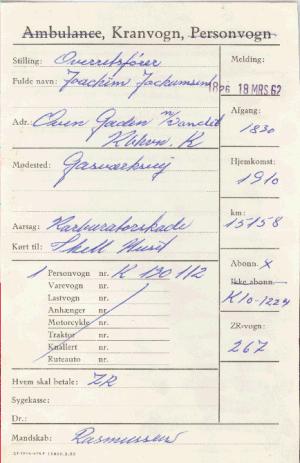 Ambulance, Kranvogn, Personvogn
Stilling: Overretsfører
Melding:
Fulde navn: Joachim Jockumsen
1826 18 MRS 62
Adr.: Oven Gaden n/Vandet
Kbhvn. K
Afgang:
1830
Mødested: Gasværksvej
Hjemkomst:
1910
km:
15158
Aarsag: Karburatorskade
Kørt til: Shell
Abonn. X
Ikke abonn.
K 10-1224
1 Personvogn nr. K 130112
Varevogn nr.
Lastvogn nr.
Anhænger nr.
Motorcykle nr.
Traktor nr.
Knallert nr.
Ruteauto nr.
ZR-vogn:
267
Hvem skal betale: ZR
Sygekasse:
Dr.:
Mandskab: Rasmussen